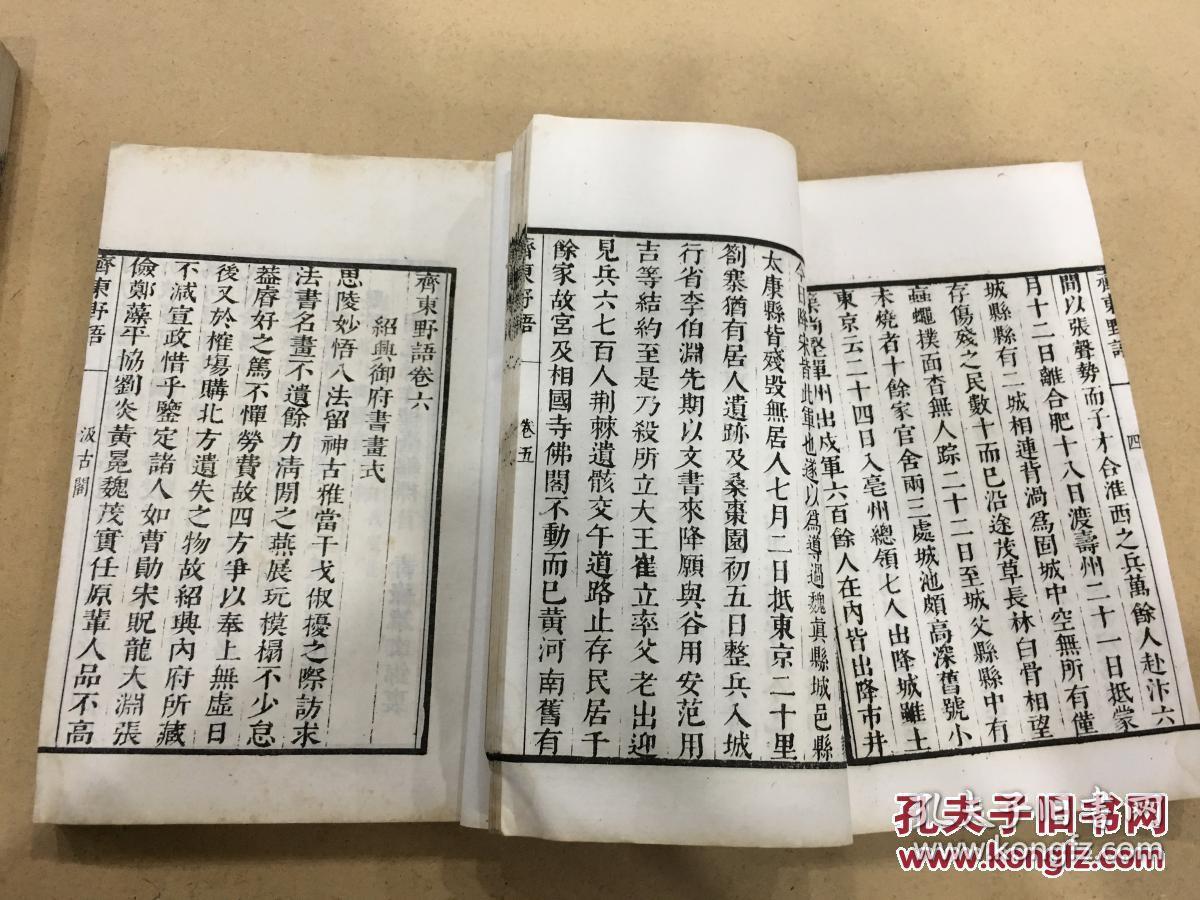 齊東野語
四
間以張聲勢而子才合淮西之兵萬餘人赴汴六
月十二日離合肥十八日渡壽州二十一日抵蒙
城縣縣有二城相連背渦爲固城中空無所有僅
存傷殘之民數十而已沿途茂草長林白骨相望
蝱蠅撲面杳無人踪二十二日至城父縣縣中有
未燒者十餘家官舍兩三處城池頗高深舊號小
東京云二十四日入亳州總領七人出降城雖土
單州出戍軍六百餘人在內皆出降市井
此軍也遂以爲導過魏眞縣城邑縣
太康縣皆殘毁無居人七月二日抵東京二十里
劄寨猶有居人遺跡及桑棗園初五日整兵入城
行省李伯淵先期以文書來降願與谷用安范用
吉等結約至是乃殺所立大王崔立率父老出迎
見兵六七百人荆棘遺骸交午道路止存民居千
餘家故宮及相國寺佛閣不動而已黄河南舊有
齊東野語
卷五
齊東野語卷六
紹興御府書畫式
思陵妙悟八法留神古雅當干戈俶擾之際訪求
法書名畫不遺餘力清閒之燕展玩模搨不少怠
葢睿好之篤不憚勞費故四方爭以奉上無虛日
後又於榷塲購北方遺失之物故紹興內府所藏
不減宣政惜乎鑒定諸人如曹勛宋貺龍大淵張
儉鄭藻平協劉炎黃冕魏茂實任原輩人品不高
齊東野語
汲古閣
孔夫子旧书网
www.kongfz.com